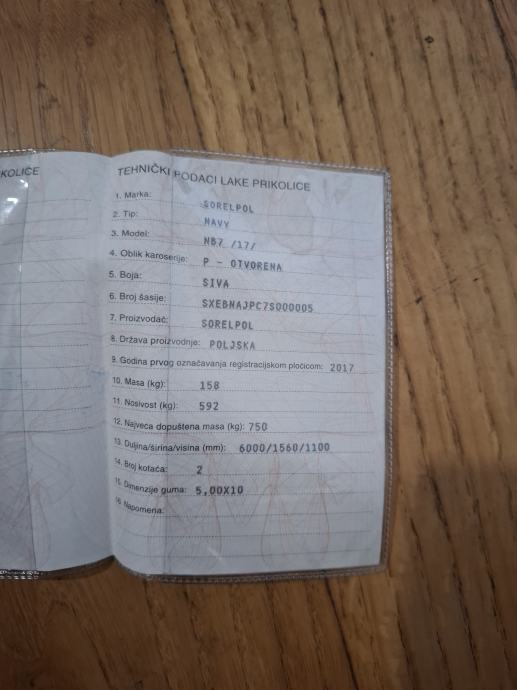 KOLICE
TEHNIČKI PODACI LAKE PRIKOLICE
1. Marka: SORELPOL
2. Tip: NAVY
3. Model: NB7 /17/
4. Oblik karoserije: P - OTVORENA
5. Boja: SIVA
6. Broj šasije: SXEBNAJPC7S000005
7. Proizvođač: SORELPOL
8. Država proizvodnje: POLJSKA
9. Godina prvog označavanja registracijskom pločicom: 2017
10. Masa (kg): 158
11. Nosivost (kg): 592
12. Najveća dopuštena masa (kg): 750
13. Duljina/širina/visina (mm): 6000/1560/1100
14. Broj kotača: 2
15. Dimenzije guma: 5,00X10
16. Napomena: